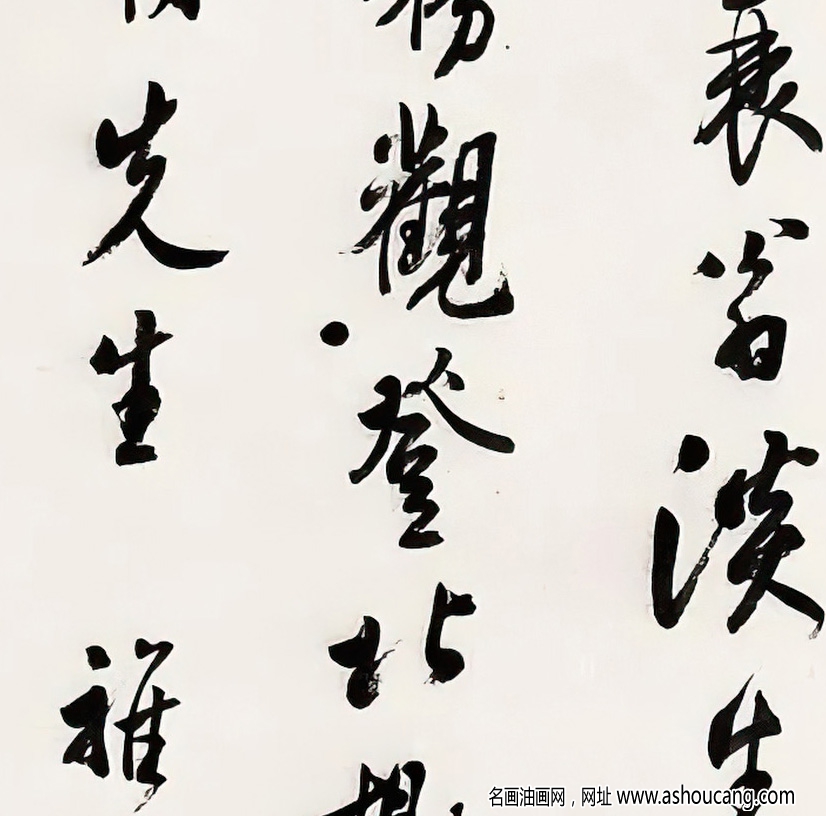 衰翁淡生
觀登北
先生雅
名画油画网，网址 www.ashoucang.com